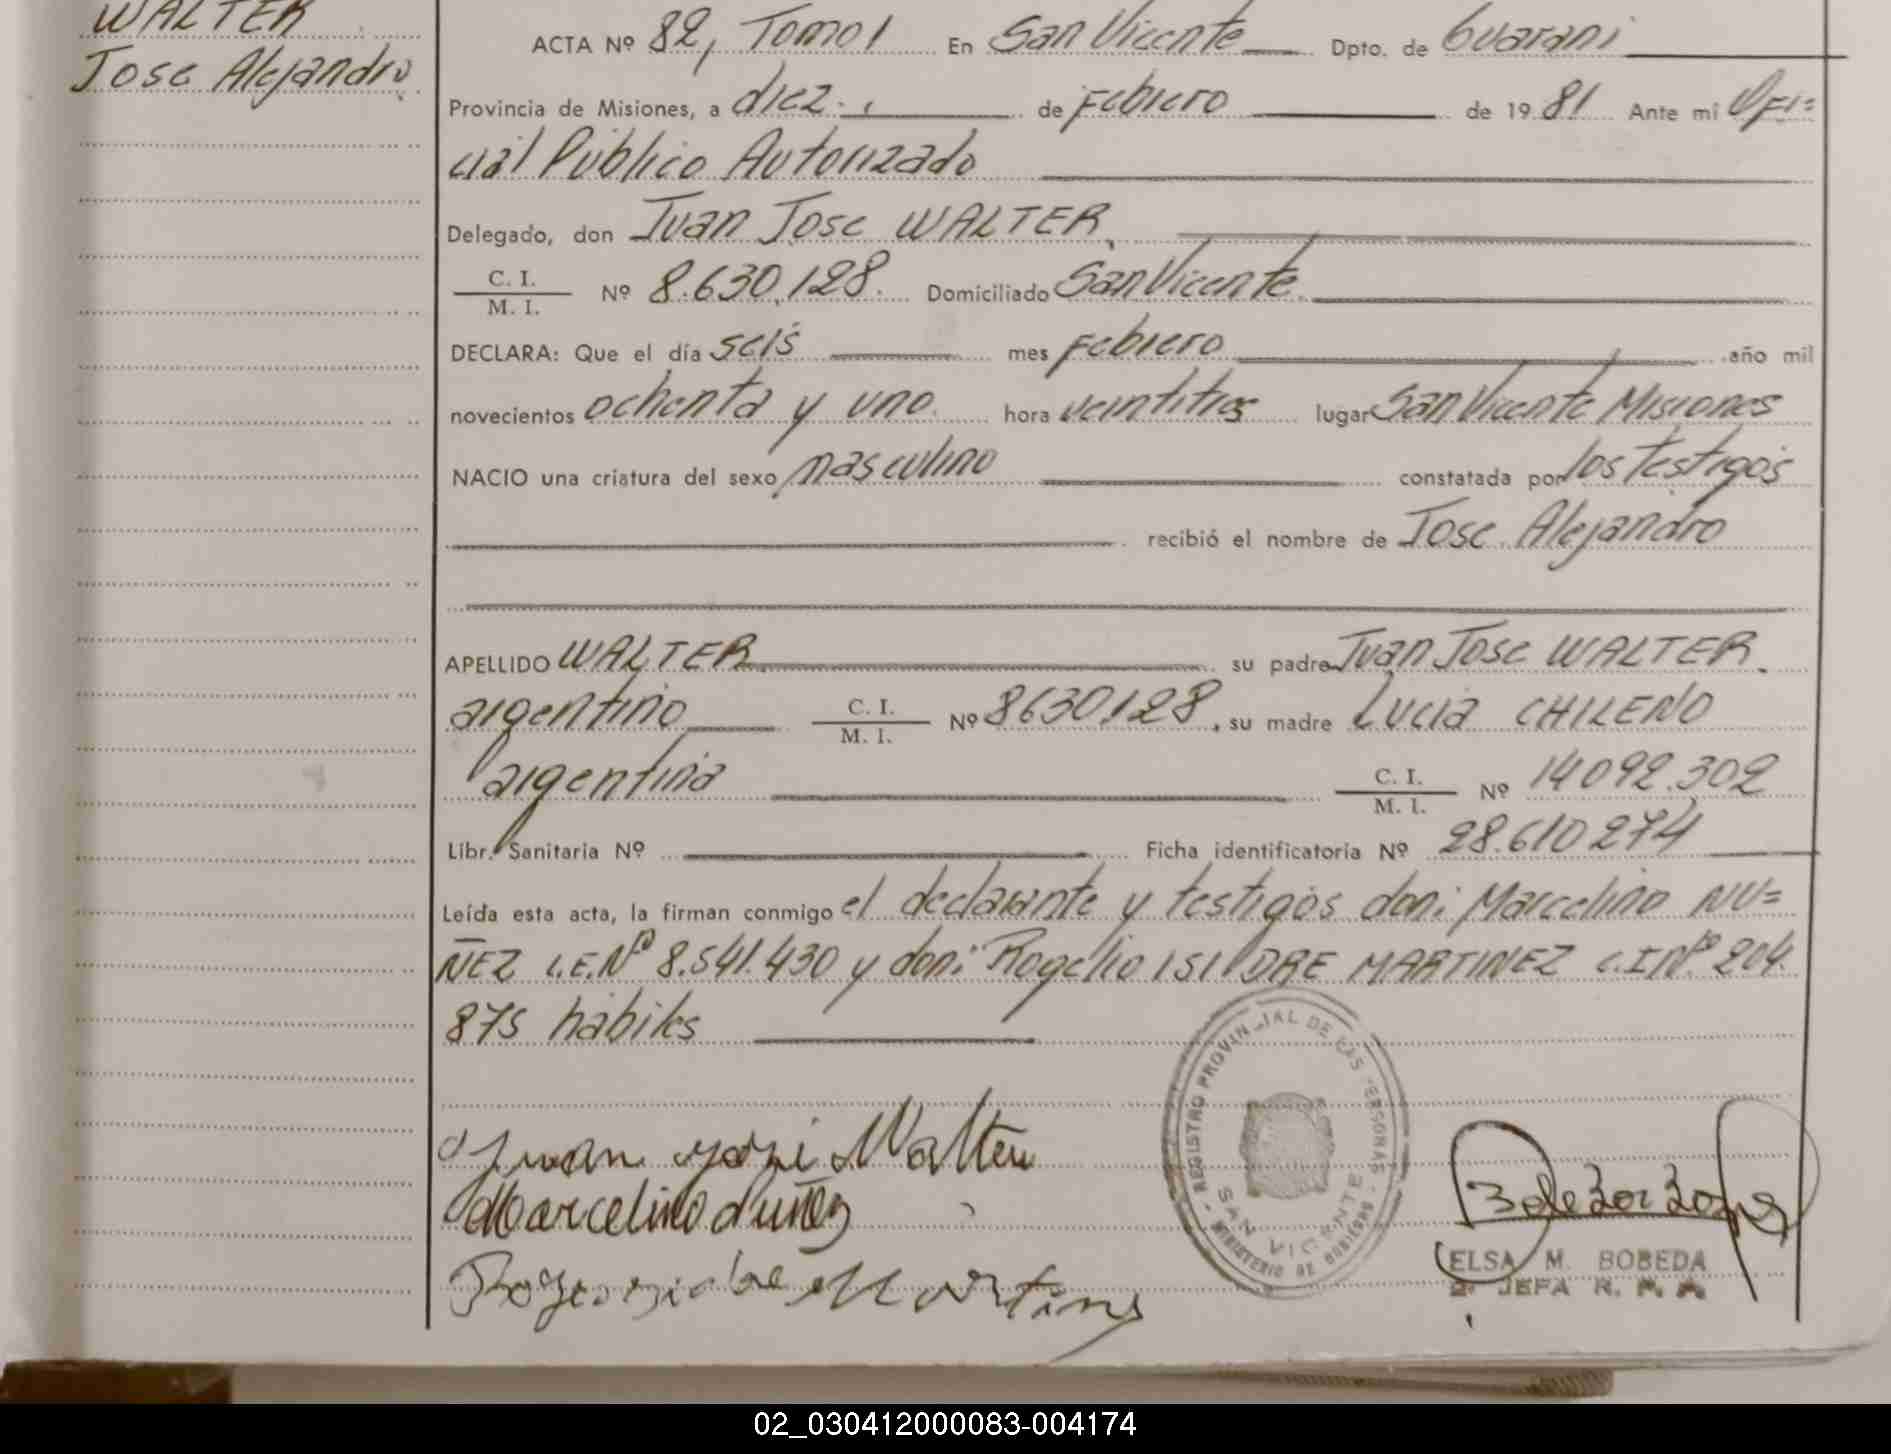 WALTER
Jose Alejandro
ACTA Nº 82, Tomo I En San Vicente Dpto. de Guarani
Provincia de Misiones, a diez. de Febrero de 19 81 Ante mi Ofi=
cial Público Autorizado
Delegado, don Juan Jose WALTER,
C. I.
M. I. Nº 8.630.128. Domiciliado San Vicente.
DECLARA: Que el día seis mes Febrero año mil
novecientos ochenta y uno. hora veintitres lugar San Vicente Misiones
NACIO una criatura del sexo masculino constatada por los testigos
recibió el nombre de Jose Alejandro
APELLIDO WALTER su padre Juan Jose WALTER.
argentino C. I.
M. I. Nº 8630.128, su madre Lucia CHILENO
argentina C. I.
M. I. Nº 14092.302
Libr. Sanitaria Nº Ficha identificatoria Nº 28.610274
Leída esta acta, la firman conmigo el declarante y testigos don: Marcelino NU=
ÑEZ L.E.Nº 8.541.430 y don: Rogelio ISIDRE MARTINEZ C.I Nº 204.
875 hábiles
Juan José Walter
Marcelino Nuñez
REGISTRO PROVINCIAL DE LAS PERSONAS
SAN VICENTE
MINISTERIO DE GOBIERNO
ELSA M. BOBEDA
2ª JEFA R. P. P.
02_030412000083-004174